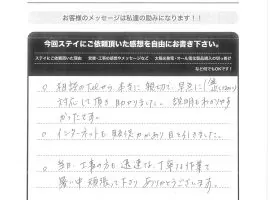 お客様のメッセージは私達の励みになります!!
今回ステイにご依頼頂いた感想を自由にお書き下さい。
ステイにご依頼頂いた理由 営業・工事の感想やメッセージなど 太陽光発電・オール電化製品購入の切っ掛け
など何でもOKです!
○ 相談のTELから本当に親切で早急に
対応して頂き助かりました。説明もわかりやす
かったです。
○ インターネットも 力があり目を引きました。
○ 当日、工事の方も迅速な、丁寧な作業で
暑い中頑張って下さりありがとうございます。